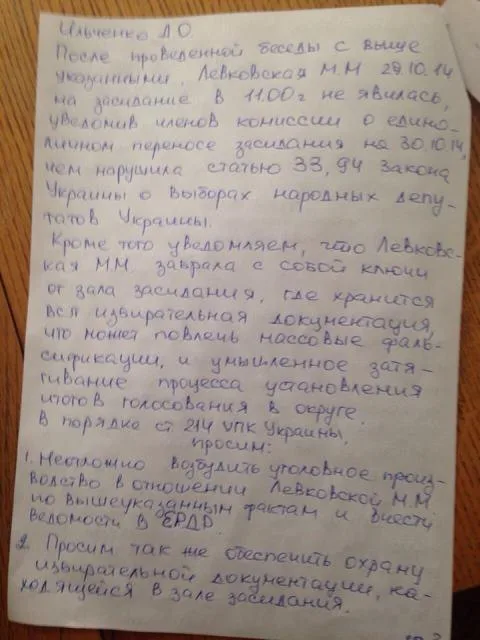 Ильченко Л О.
После проведенной беседы с выше
указанными, Левковская М.М 29.10.14
на засидание в 11.00г не явилась,
уведомив членов комиссии о едино-
личном переносе засидания на 30.10.14,
чем нарушила статью 33, 94 Закона
Украины о выборах народных депу-
татов Украины.
Кроме того уведомляем, что Левковс-
кая М.М. забрала с собой ключи
от зала засидания, где хранится
вся избирательная документация,
что может повлечь массовые фаль-
сификации, и умышленное затя-
гивание процесса установления
итогов голосования в округе.
В порядке ст 214 УПК Украины,
просим:
1. Неотложно возбудить уголовное произ-
водство в отношении Левковской М.М
по вышеуказанным фактам и внести
ведомости в ЕРДР.
2. Просим так же обеспечить охрану
избирательной документации, на-
ходящейся в зале засидания.